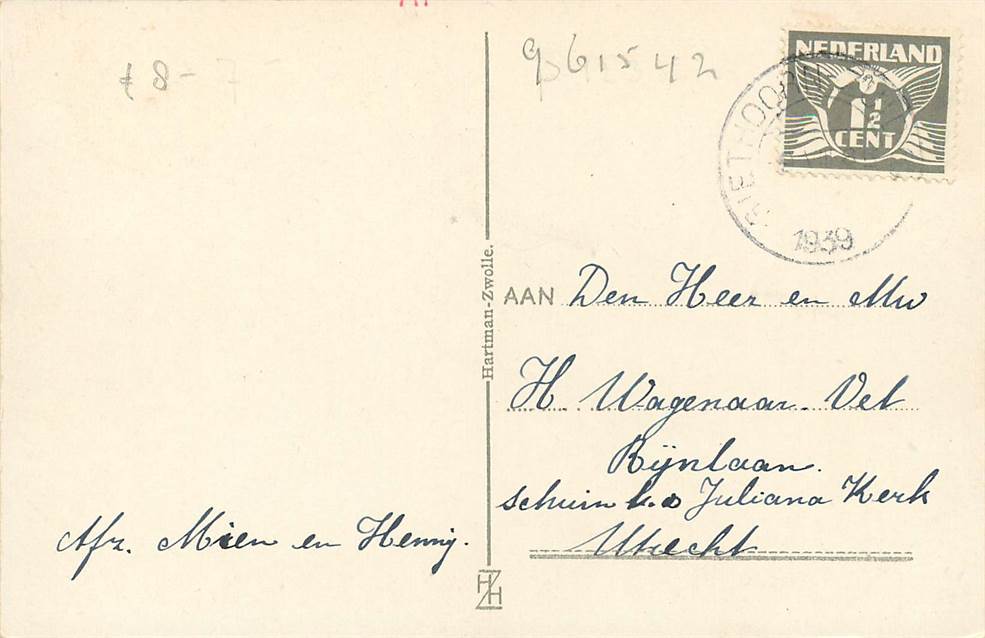 f 8-7-
9961542
NEDERLAND
1½
CENT
GIETHOORN
1939
Hartman-Zwolle.
AAN Den Heer en Mw
H. Wagenaar. Vet
Rijnlaan.
schuin t.o Juliana Kerk
Utrecht
Afz. Mien en Henny.
HZH